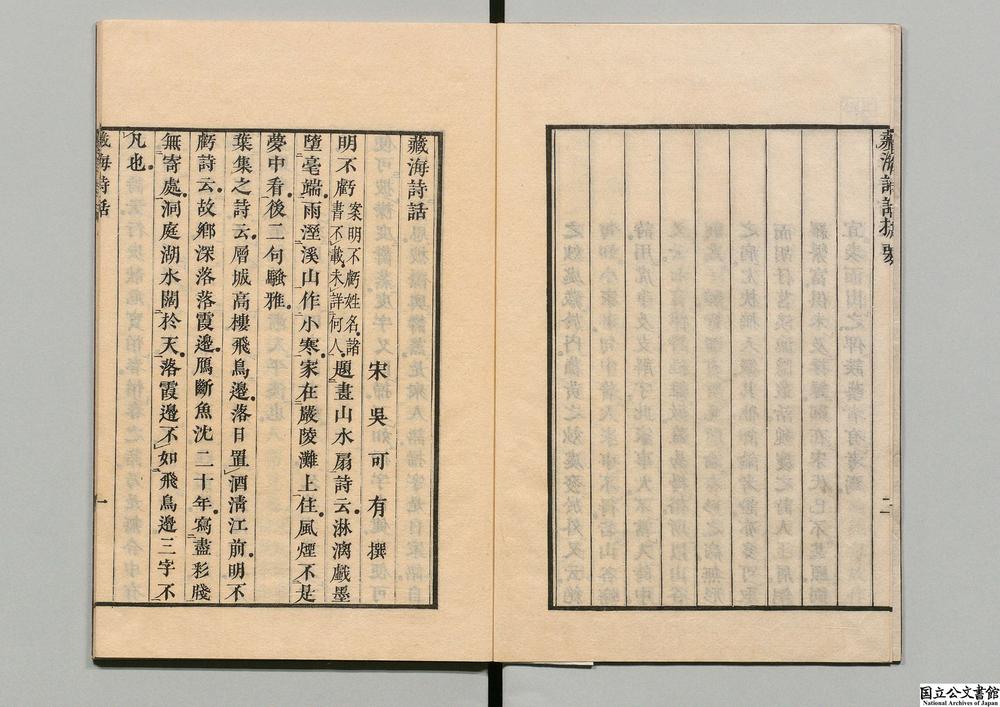 藏海詩話
二
藏海詩話
宋 吳 可 有 撰
明不虧案明不虧姓名諸書不載未詳何人題畫山水扇詩云淋漓戲墨
墮毫端雨溼溪山作小寒家在嚴陵灘上住風煙不是
夢中看後二句騷雅
葉集之詩云層城高樓飛鳥邊落日置酒淸江前明不
虧詩云故鄉深落落霞邊鴈斷魚沈二十年寫盡彩牋
無寄處洞庭湖水闊於天落霞邊不如飛鳥邊三字不
凡也
藏海詩話
一
国立公文書館
National Archives of Japan